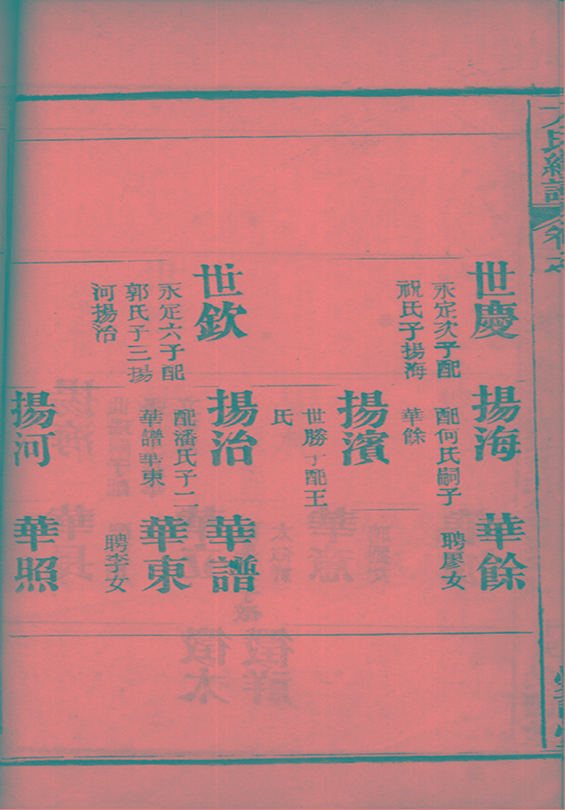 氏總譜
世慶
永定次子配
祝氏子揚海
世欽
永定六子配
郭氏子三揚
河揚治
揚海
配何氏嗣子
華餘
揚濱
世勝子配王
氏
揚治
配潘氏子二
華譜華東
揚河
華餘
聘廖女
華譜
華東
聘李女
華照